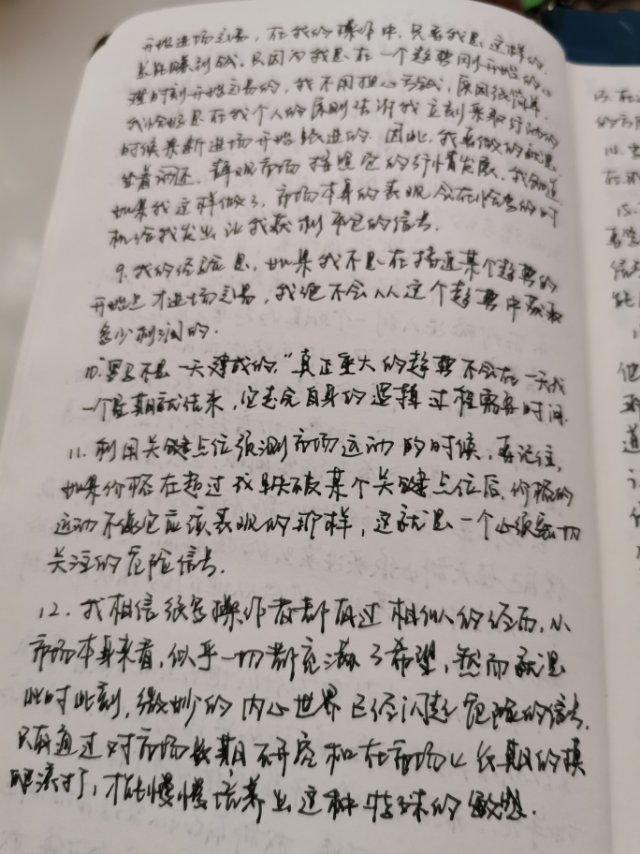 开始进场交易，在我的操作中，只有我是这样的，
总能赚到钱，只因为我是在一个趋势刚开始的心
理时刻开始交易的，我不用担心亏钱，原因很简单，
我恰恰是在我个人的原则告诉我立刻采取行动的
时候果断进场开始跟进的。因此，我要做的就是
坐着测还，静观市场按照它的行情发展，我知道，
如果我这样做了，市场本身的表现会在恰当的时
机给我发出让我获利平仓的信号。
9.我的经验是，如果我不是在接近某个趋势的
开始上才进场交易，我绝不会从这个趋势中获取
多少利润的。
10.罗马不是一天建成的，"真正重大的趋势不会在一天或
一个星期就结束，它走完自身的逻辑过程需要时间。
11.利用关键点位预测市场运动的时候，要记住，
如果价格在超过或跌破某个关键点位后，价格的
运动不像它应该表现的那样，这就是一个必须密切
关注的危险信号。
12.我相信很多操作者都有过相似的经历，从
市场本身来看，似乎一切都充满了希望，然而就是
此时此刻，微妙的内心世界已经闪起危险的信号，
只有通过对市场长期研究和在市场上长期的摸
爬滚打，才能慢慢培养出这种特殊的敏感。